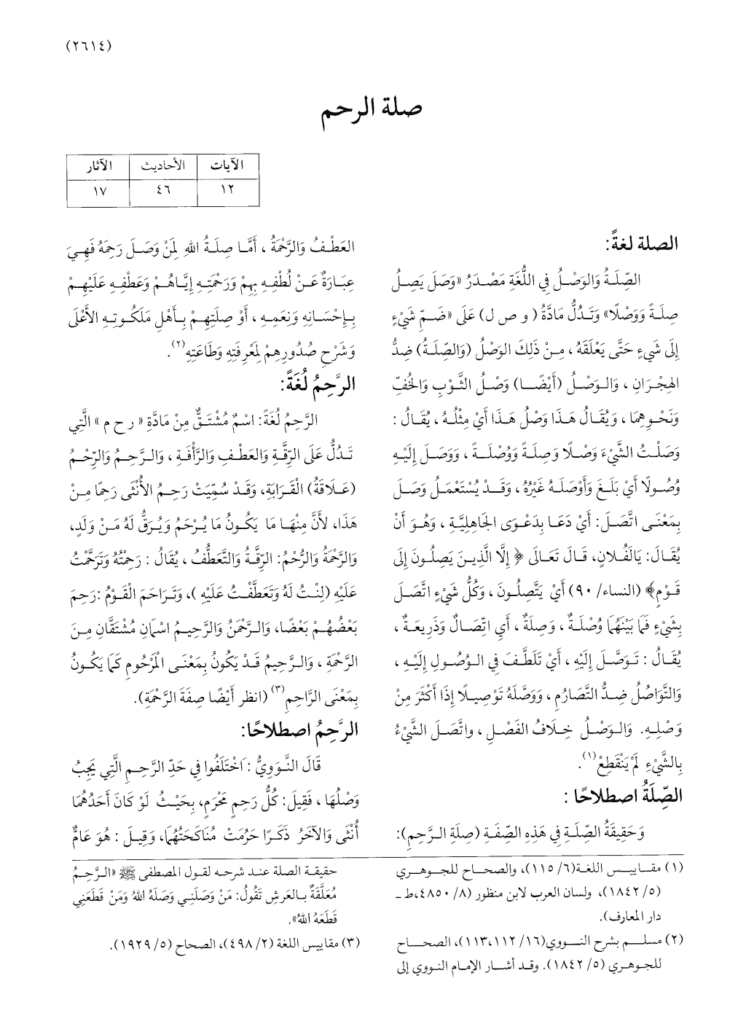 (٢٦١٤)
صلة الرحم
الآيات الأحاديث الآثار
١٢ ٤٦ ١٧
الصلة لغةً:
الصِّلَةُ وَالوَصْلُ فِي اللُّغَةِ مَصْدَرُ «وَصَلَ يَصِلُ
صِلَةً وَوَصْلًا» وَتَدُلُّ مَادَّةُ (و ص ل) عَلَى «ضَمِّ شَيْءٍ
إِلَى شَيءٍ حَتَّى يَعْلَقَهُ، مِنْ ذَلِكَ الوَصْلُ (وَالصِّلَةُ) ضِدُّ
الهِجْرَانِ، وَالوَصْلُ (أَيْضًا) وَصْلُ الثَّوْبِ وَالخُفِّ
وَنَحْوِهِمَا، وَيُقَالُ هَذَا وَصْلُ هَذَا أَيْ مِثْلُهُ، يُقَالُ:
وَصَلْتُ الشَّيْءَ وَصْلًا وَصِلَةً وَوُصْلَةً، وَوَصَلَ إِلَيْهِ
وُصُولًا أَيْ بَلَغَ وَأَوْصَلَهُ غَيْرُهُ، وَقَدْ يُسْتَعْمَلُ وَصَلَ
بِمَعْنَى اتَّصَلَ: أَيْ دَعَا بِدَعْوَى الجَاهِلِيَّةِ، وَهُوَ أَنْ
يُقَالَ: يَالَفُلَانِ، قَالَ تَعَالَى ﴿إِلَّا الَّذِينَ يَصِلُونَ إِلَى
قَوْمٍ﴾ (النساء/ ٩٠) أَيْ يَتَّصِلُونَ، وَكُلُّ شَيْءٍ اتَّصَلَ
بِشَيْءٍ فَمَا بَيْنَهُمَا وُصْلَةٌ، وَصِلَةٌ، أَيِ اتِّصَالٌ وَذَرِيعَةٌ،
يُقَالُ: تَوَصَّلَ إِلَيْهِ، أَيْ تَلَطَّفَ فِي الوُصُولِ إِلَيْهِ،
وَالتَّوَاصُلُ ضِدُّ التَّصَارُمِ، وَوَصَّلَهُ تَوْصِيلًا إِذَا أَكْثَرَ مِنْ
وَصْلِهِ. وَالوَصْلُ خِلَافُ الفَصْلِ، واتَّصَلَ الشَّيْءُ
بِالشَّيْءِ لَمْ يَنْقَطِعْ(١).
الصِّلَةُ اصطلاحًا:
وَحَقِيقَةُ الصِّلَةِ فِي هَذِهِ الصِّفَةِ (صِلَةِ الرَّحِمِ):
العَطْفُ وَالرَّحْمَةُ، أَمَّا صِلَةُ اللهِ لِمَنْ وَصَلَ رَحِمَهُ فَهِيَ
عِبَارَةٌ عَنْ لُطْفِهِ بِهِمْ وَرَحْمَتِهِ إِيَّاهُمْ وَعَطْفِهِ عَلَيْهِمْ
بِإِحْسَانِهِ وَنِعَمِهِ، أَوْ صِلَتِهِمْ بِأَهْلِ مَلَكُوتِهِ الأَعْلَى
وَشَرْحِ صُدُورِهِمْ لِمَعْرِفَتِهِ وَطَاعَتِهِ(٢).
الرَّحِمُ لُغَةً:
الرَّحِمُ لُغَةً: اسْمٌ مُشْتَقٌّ مِنْ مَادَّةِ «ر ح م» الَّتِي
تَدُلُّ عَلَى الرِّقَّةِ وَالعَطْفِ وَالرَّأْفَةِ، والرَّحِمُ وَالرِّحْمُ
(عَلَاقَةُ) الْقَرَابَةِ، وَقَدْ سُمِّيَتْ رَحِمُ الأُنْثَى رَحِمًا مِنْ
هَذَا، لأَنَّ مِنْهَا مَا يَكُونُ مَا يُرْحَمُ وَيُرَقُّ لَهُ مَنْ وَلَدٍ،
وَالرَّحْمَةُ وَالرُّحْمُ: الرِّقَّةُ وَالتَّعَطُّفُ، يُقَالُ: رَحِمْتُهُ وَتَرَحَّمْتُ
عَلَيْهِ (لِنْتُ لَهُ وَتَعَطَّفْتُ عَلَيْهِ)، وَتَرَاحَمَ الْقَوْمُ: رَحِمَ
بَعْضُهُمْ بَعْضًا، وَالرَّحْمَنُ وَالرَّحِيمُ اسْمَانِ مُشْتَقَّانِ مِنَ
الرَّحْمَةِ، وَالرَّحِيمُ قَدْ يَكُونُ بِمَعْنَى الْمَرْحُومِ كَمَا يَكُونُ
بِمَعْنَى الرَّاحِمِ(٣) (انظر أَيْضًا صِفَةَ الرَّحْمَةِ).
الرَّحِمُ اصطلاحًا:
قَالَ النَّوَوِيُّ: اخْتَلَفُوا فِي حَدِّ الرَّحِمِ الَّتِي يَجِبُ
وَصْلُهَا، فَقِيلَ: كُلُّ رَحِمٍ مَحْرَمٍ، بِحَيْثُ لَوْ كَانَ أَحَدُهُمَا
أُنْثَى وَالآخَرُ ذَكَرًا حَرُمَتْ مُنَاكَحَتُهُمَا، وَقِيلَ: هُوَ عَامٌّ
(١) مقاييس اللغة(٦/ ١١٥)، والصحاح للجوهري
(٥/ ١٨٤٢)، ولسان العرب لابن منظور (٨/ ٤٨٥٠،ط ـ
دار المعارف).
(٢) مسلم بشرح النووي(١٦/ ١١٢،١١٣)، الصحاح
للجوهري (٥/ ١٨٤٢). وقد أشار الإمام النووي إلى
حقيقة الصلة عند شرحه لقول المصطفى ﷺ «الرَّحِمُ
مُعَلَّقَةٌ بالعَرشِ تَقُولُ: مَنْ وَصَلَنِي وَصَلَهُ اللهُ وَمَنْ قَطَعَنِي
قَطَعَهُ اللهُ».
(٣) مقاييس اللغة (٢/ ٤٩٨)، الصحاح (٥/ ١٩٢٩).